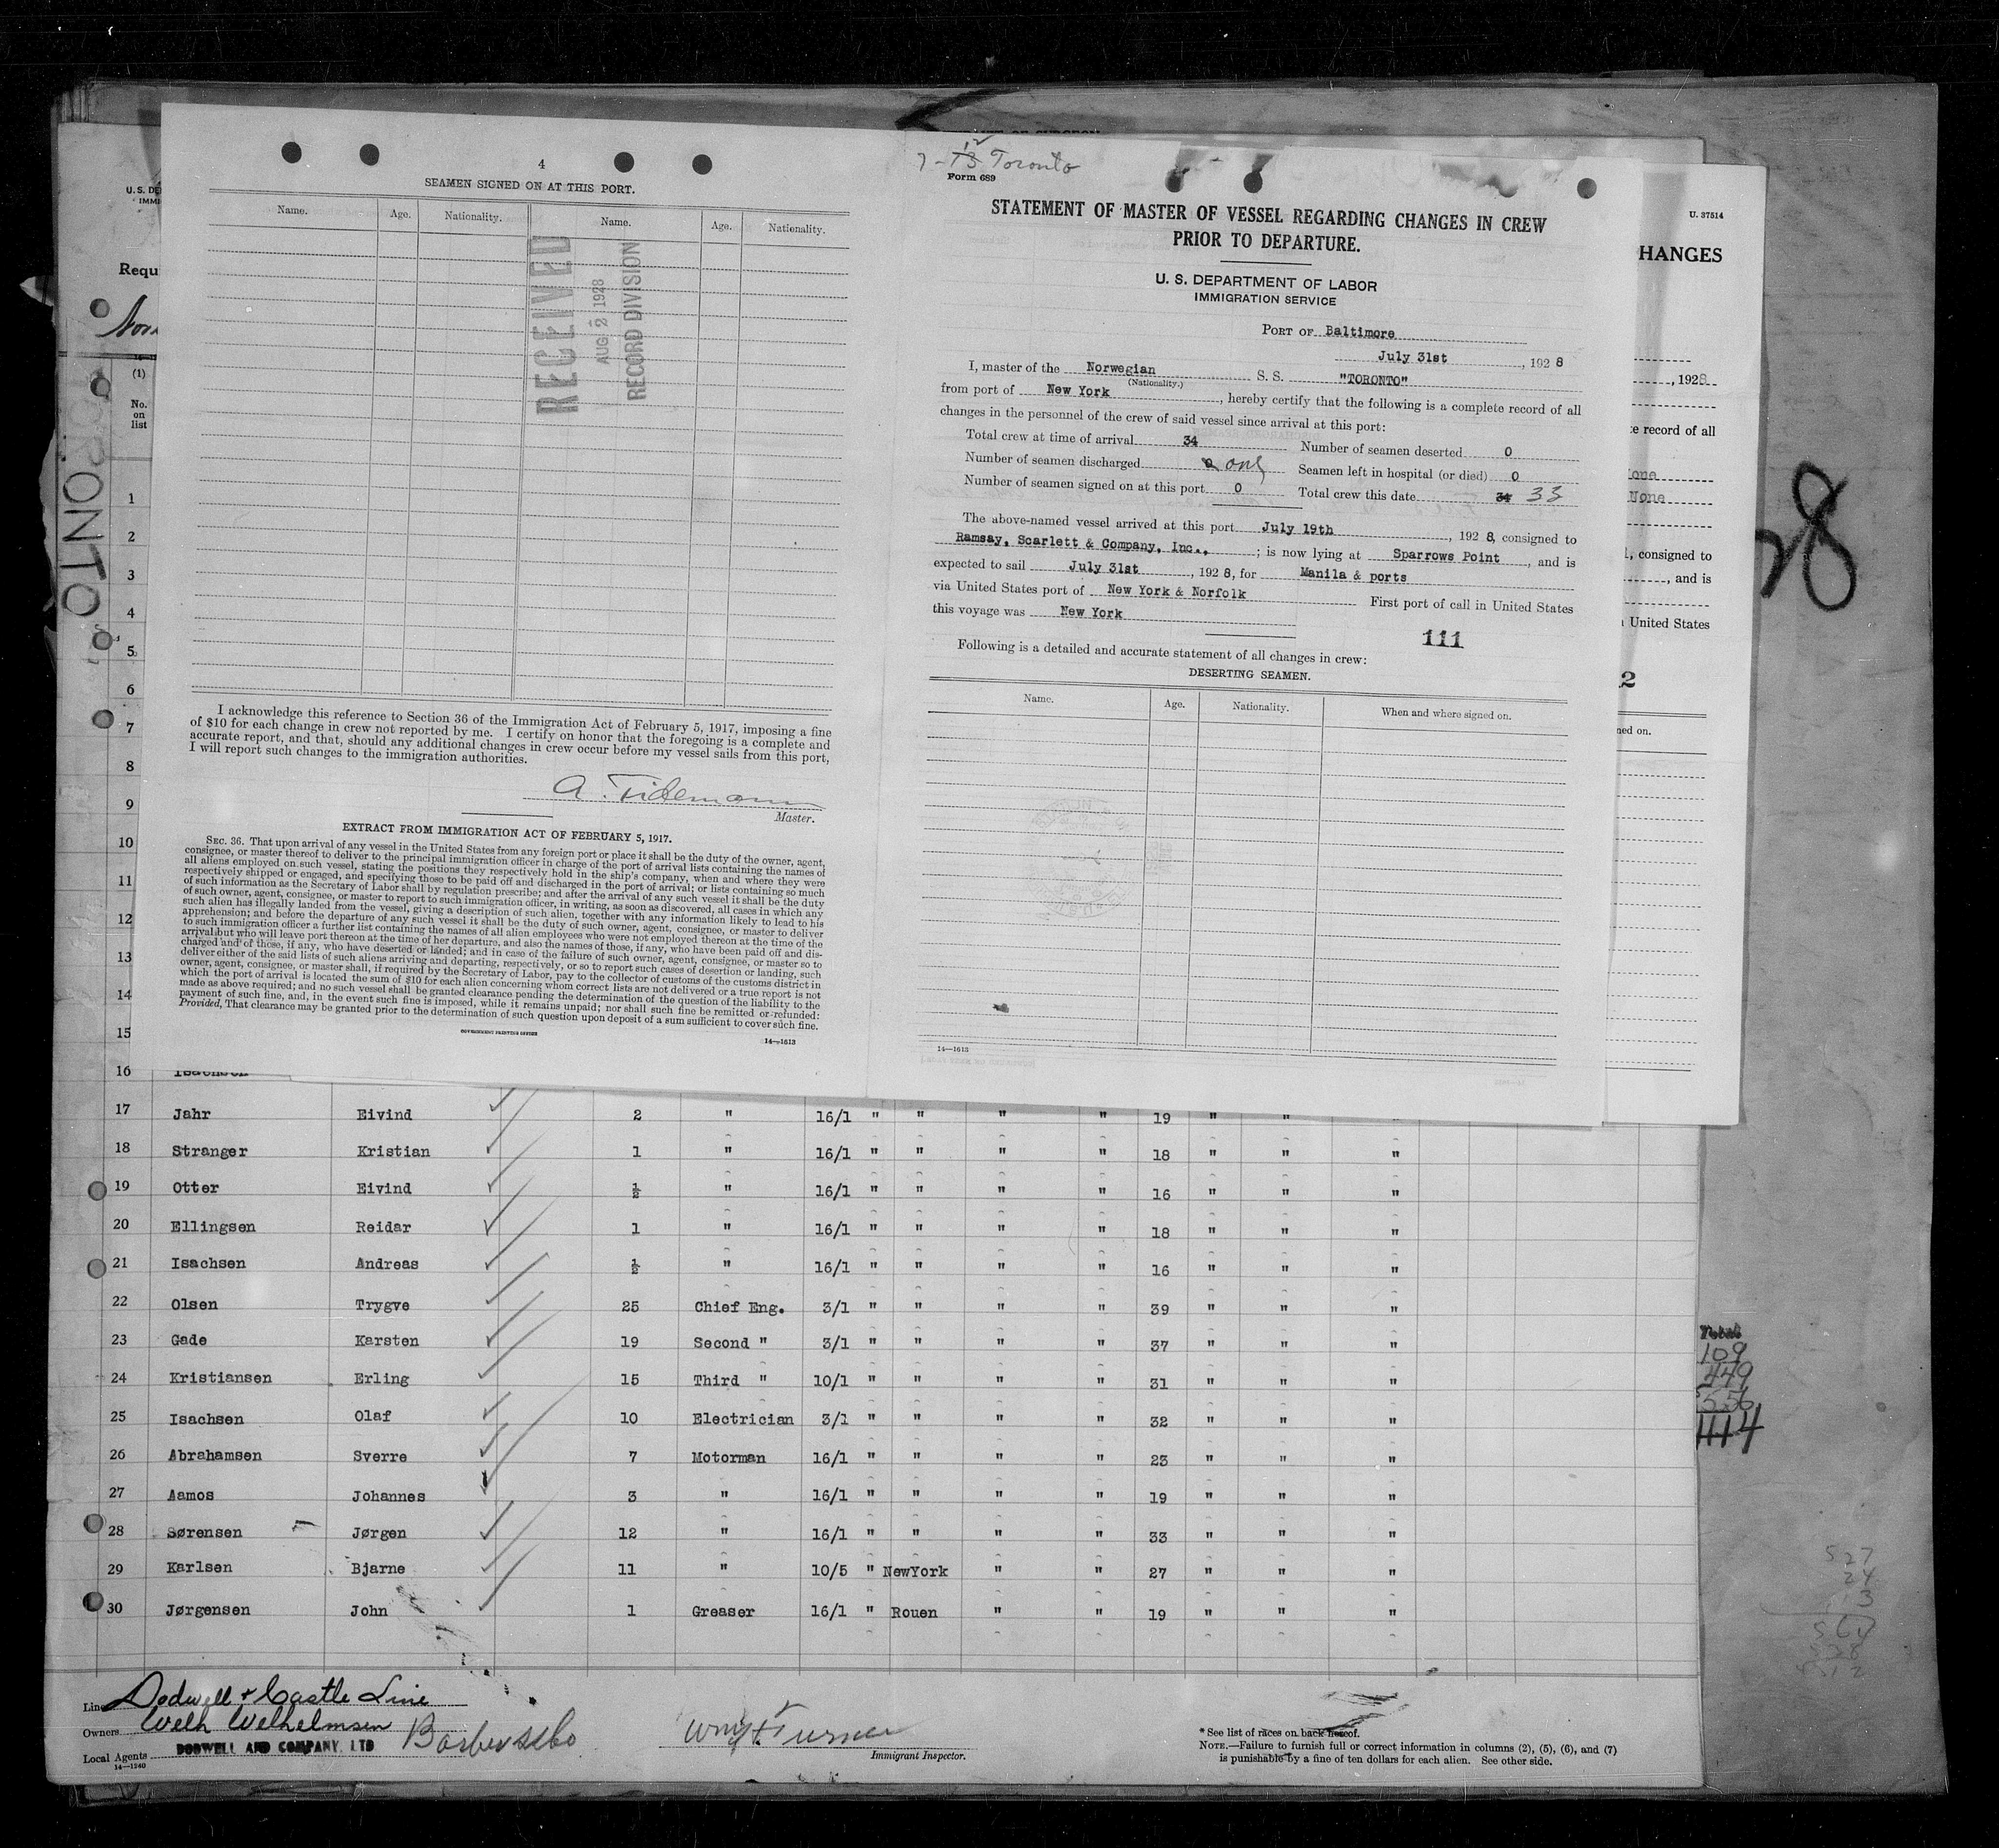 4
SEAMEN SIGNED ON AT THIS PORT.
Name. Age. Nationality. Name. Age. Nationality.
RECEIVED
AUG 2 1928
RECORD DIVISION
I acknowledge this reference to Section 36 of the Immigration Act of February 5, 1917, imposing a fine
of $10 for each change in crew not reported by me. I certify on honor that the foregoing is a complete and
accurate report, and that, should any additional changes in crew occur before my vessel sails from this port,
I will report such changes to the immigration authorities.
A. Tidemann
Master.
EXTRACT FROM IMMIGRATION ACT OF FEBRUARY 5, 1917.
SEC. 36. That upon arrival of any vessel in the United States from any foreign port or place it shall be the duty of the owner, agent,
consignee, or master thereof to deliver to the principal immigration officer in charge of the port of arrival lists containing the names of
all aliens employed on such vessel, stating the positions they respectively hold in the ship's company, when and where they were
respectively shipped or engaged, and specifying those to be paid off and discharged in the port of arrival; or lists containing so much
of such information as the Secretary of Labor shall by regulation prescribe; and after the arrival of any such vessel it shall be the duty
of such owner, agent, consignee, or master to report to such immigration officer, in writing, as soon as discovered, all cases in which any
such alien has illegally landed from the vessel, giving a description of such alien, together with any information likely to lead to his
apprehension; and before the departure of any such vessel it shall be the duty of such owner, agent, consignee, or master to deliver
to such immigration officer a further list containing the names of all alien employees who were not employed thereon at the time of the
arrival but who will leave port thereon at the time of her departure, and also the names of those, if any, who have been paid off and dis-
charged and of those, if any, who have deserted or landed; and in case of the failure of such owner, agent, consignee, or master so to
deliver either of the said lists of such aliens arriving and departing, respectively, or so to report such cases of desertion or landing, such
owner, agent, consignee, or master shall, if required by the Secretary of Labor, pay to the collector of customs of the customs district in
which the port of arrival is located the sum of $10 for each alien concerning whom correct lists are not delivered or a true report is not
made as above required; and no such vessel shall be granted clearance pending the determination of the question of the liability to the
payment of such fine, and, in the event such fine is imposed, while it remains unpaid; nor shall such fine be remitted or refunded:
Provided, That clearance may be granted prior to the determination of such question upon deposit of a sum sufficient to cover such fine.
GOVERNMENT PRINTING OFFICE
14—1613
Toronto
Form 689
STATEMENT OF MASTER OF VESSEL REGARDING CHANGES IN CREW
PRIOR TO DEPARTURE.
U. S. DEPARTMENT OF LABOR
IMMIGRATION SERVICE
PORT OF Baltimore
July 31st, 1928
I, master of the Norwegian S. S. "TORONTO"
(Nationality.)
from port of New York, hereby certify that the following is a complete record of all
changes in the personnel of the crew of said vessel since arrival at this port:
Total crew at time of arrival 34 Number of seamen deserted 0
Number of seamen discharged one Seamen left in hospital (or died) 0
Number of seamen signed on at this port 0 Total crew this date 34 33
The above-named vessel arrived at this port July 19th, 1928, consigned to
Ramsay, Scarlett & Company, Inc., ; is now lying at Sparrows Point, and is
expected to sail July 31st, 1928, for Manila & ports
via United States port of New York & Norfolk First port of call in United States
this voyage was New York
111
Following is a detailed and accurate statement of all changes in crew:
DESERTING SEAMEN.
Name. Age. Nationality. When and where signed on.
14—1613
U. 37514
HANGES
, 1928
e record of all
one
None
, consigned to
, and is
United States
2
ned on.
28
U. S. DE
IMMI
Requ
Nor
TORONTO
(1)
No.
on
list
1
2
3
4
5
6
7
8
9
10
11
12
13
14
15
16 Isachsen
17 Jahr Eivind 2 " 16/1 " " " " 19 " "
18 Stranger Kristian 1 " 16/1 " " " " 18 " " "
19 Otter Eivind ½ " 16/1 " " " " 16 " " "
20 Ellingsen Reidar 1 " 16/1 " " " " 18 " " "
21 Isachsen Andreas ½ " 16/1 " " " " 16 " " "
22 Olsen Trygve 25 Chief Eng. 3/1 " " " " 39 " " "
23 Gade Karsten 19 Second " 3/1 " " " " 37 " " "
24 Kristiansen Erling 15 Third " 10/1 " " " " 31 " " "
25 Isachsen Olaf 10 Electrician 3/1 " " " " 32 " " "
26 Abrahamsen Sverre 7 Motorman 16/1 " " " " 23 " " "
27 Aamos Johannes 3 " 16/1 " " " " 19 " " "
28 Sørensen Jørgen 12 " 16/1 " " " " 33 " " "
29 Karlsen Bjarne 11 " 10/5 " NewYork " " 27 " " "
30 Jørgensen John 1 Greaser 16/1 " Rouen " " 19 " " "
109
449
556
1114
527
24
13
564
Line Dodwell & Castle Line
Owners Welh Welhelmsen
Local Agents DODWELL AND COMPANY, LTD Barber & Co
14—1240
Wm H. Turner
Immigrant Inspector.
* See list of races on back hereof.
NOTE.—Failure to furnish full or correct information in columns (2), (5), (6), and (7)
is punishable by a fine of ten dollars for each alien. See other side.